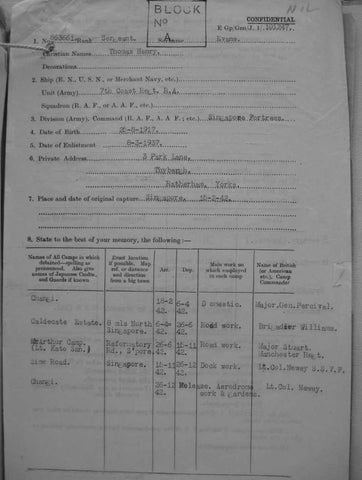 BLOCK
Nº
A
NIL
CONFIDENTIAL
E Gp/Gen(J.1)/
1. No. Rank Sergeant. Surname Evans.
Christian Names Thomas Henry.
Decorations
2. Ship (R. N., U. S. N., or Merchant Navy, etc.)
Unit (Army) 7th Coast Regt. R.A.
Squadron (R. A. F., or A. A. F., etc.)
3. Division (Army), Command (R. A. F., A. A. F., etc.) Singapore Fortress.
4. Date of Birth -8-1917.
5. Date of Enlistment 8-3-1937.
6. Private Address Park Lane,
Thybergh,
Rotherham, Yorks.
7. Place and date of original capture Singapore. 15-2-42.
8. State to the best of your memory, the following :—
Names of All Camps in which detained—spelling as pronounced. Also give names of Japanese Comdts. and Guards if known
Exact location if possible. Map ref. or distance and direction from a big town
Arr.
Dep.
Main work on which employed in each camp
Name of British (or American etc.), Camp Commander
Changi. 18-2 42. 6-4 42. Domestic. Major.Gen.Percival.
Caldecote Estate. 8 mls North Singapore. 6-4 42. 26-6 42. Road work. Brigadier Williams.
McArthur Camp. (Lt. Kato San.) Reformatory Rd., S'pore. 26-6 42. 15-11 42. Road work. Major Stuart. Manchester Regt.
Sime Road. Singapore. 15-11 42. 26-12 42. Dock work. Lt.Col.Newey S.S.V.F.
Changi. 26-12 42. Release. Aerodrome work & gardens. Lt.Col. Newey.